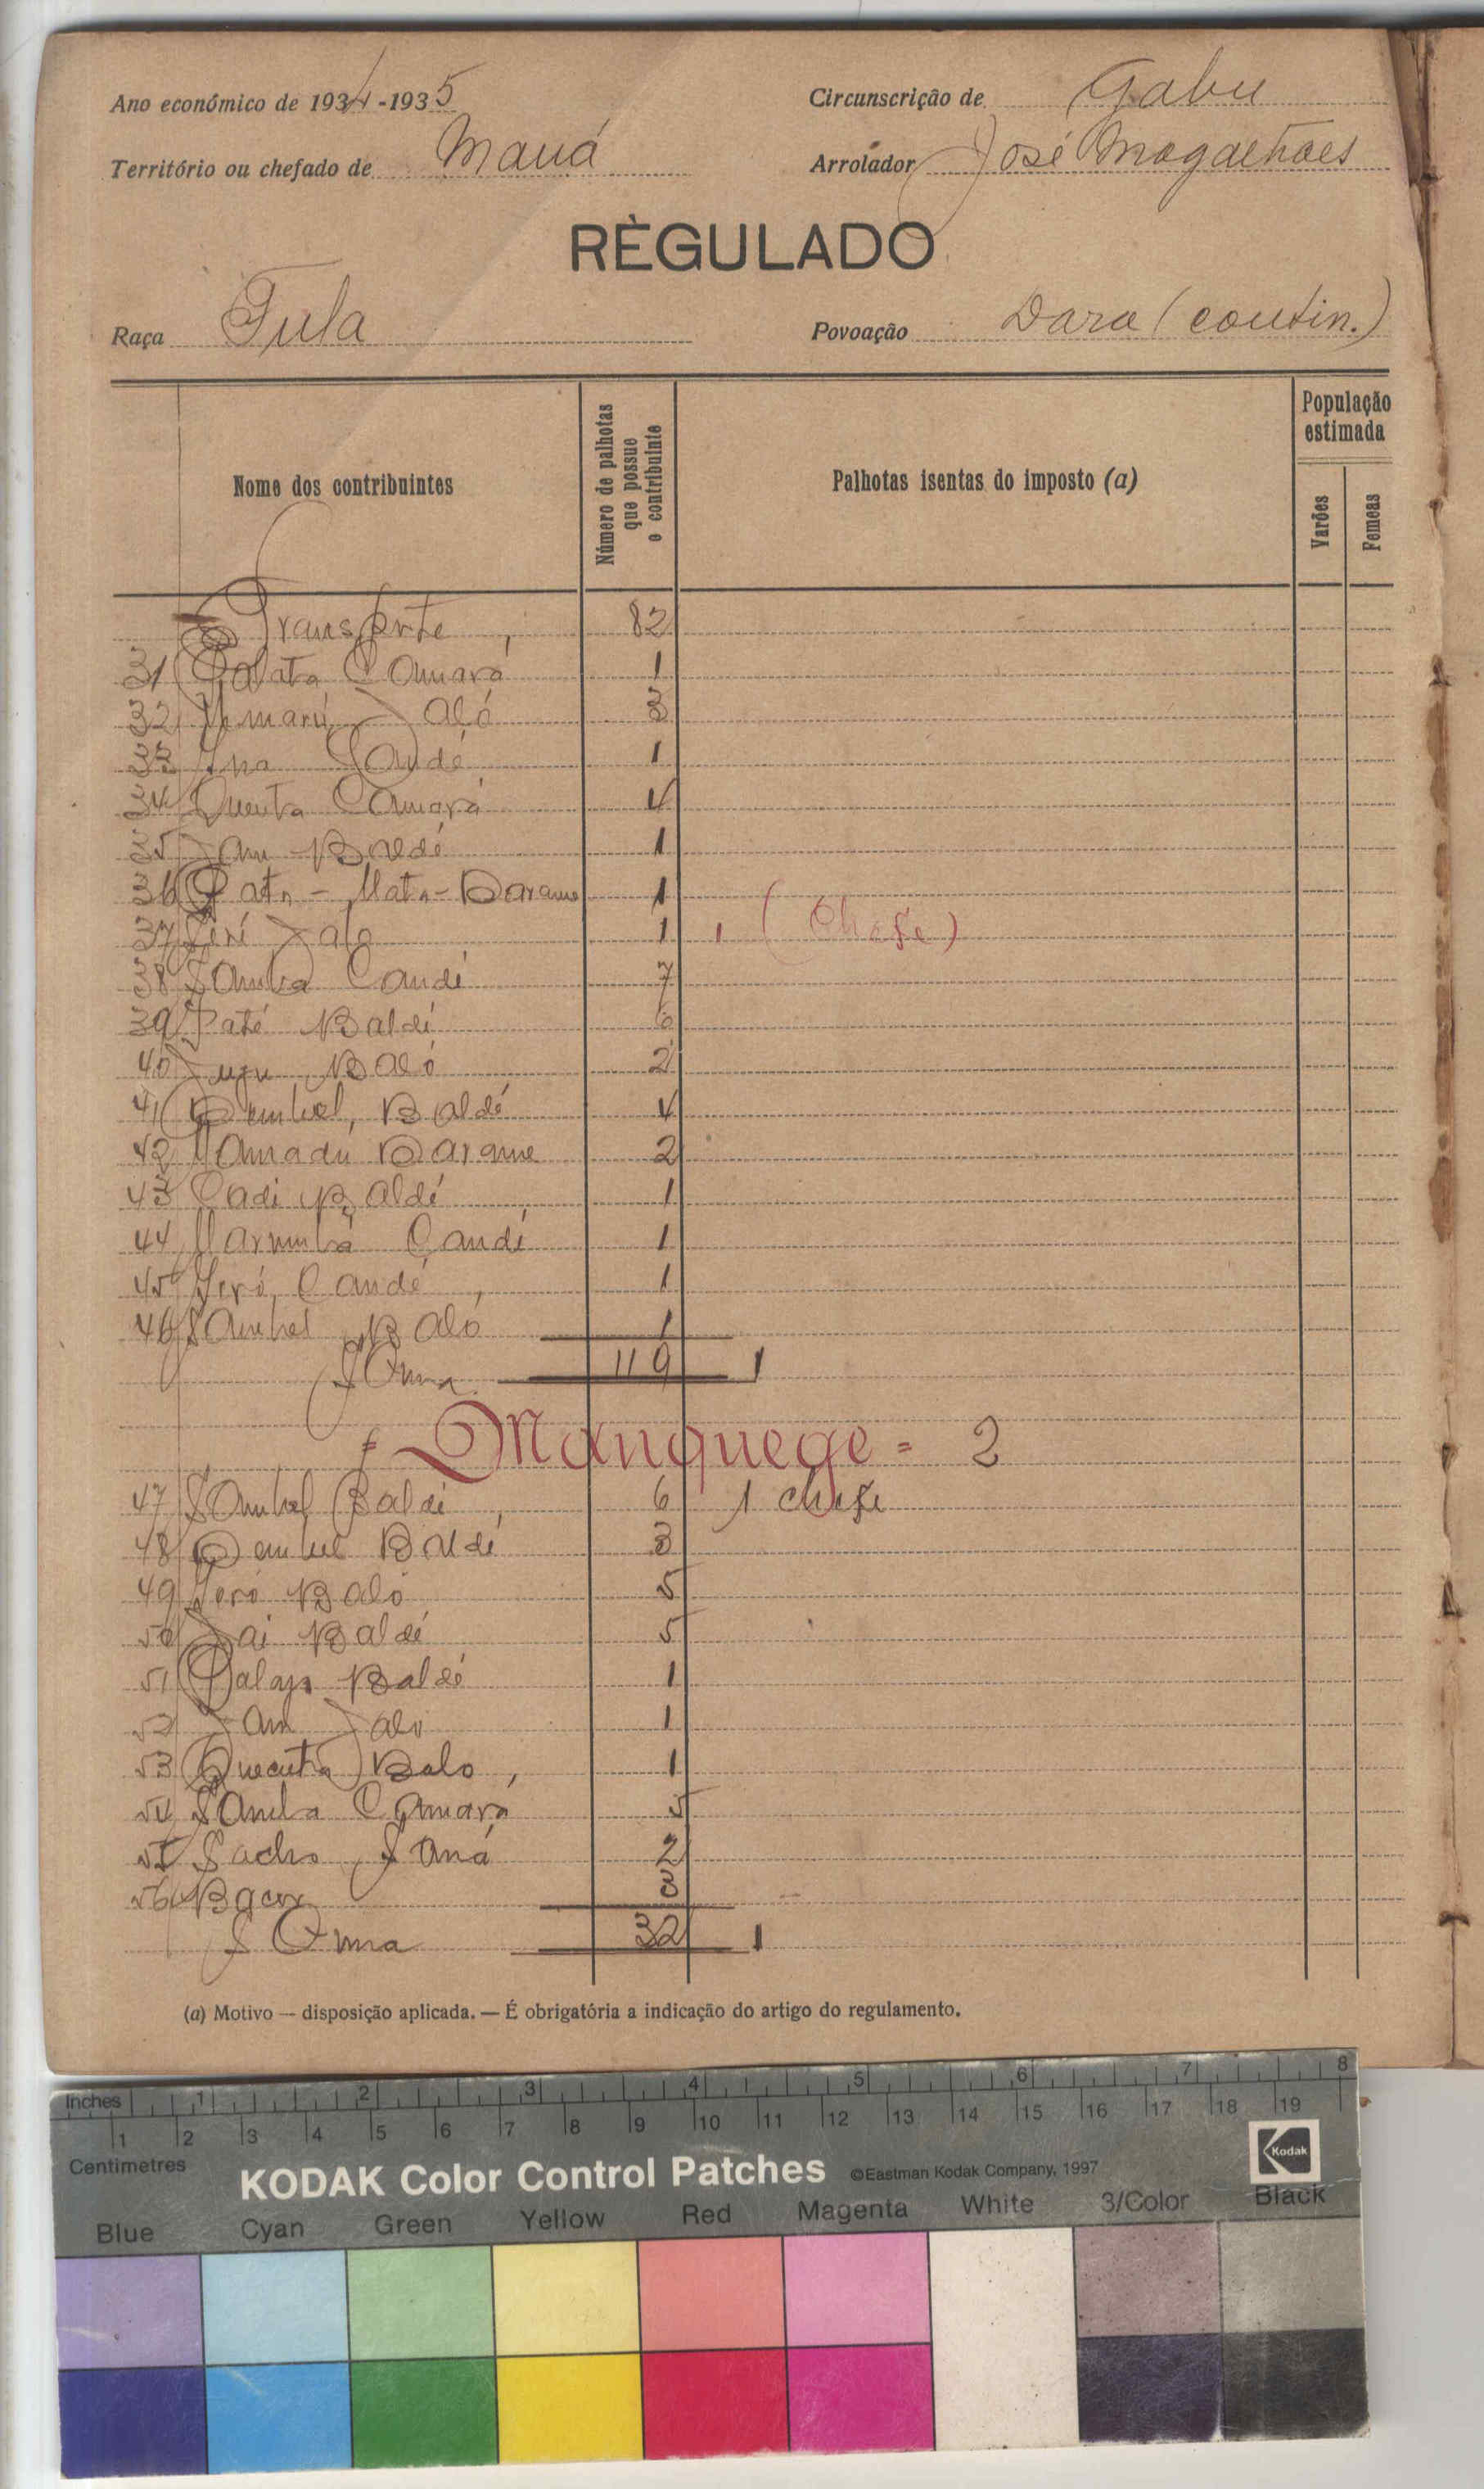 Ano económico de 1934-1935
Circunscrição de Gabu
Território ou chefado de Maná
Arrolador José Magalhães
RÈGULADO
Raça Fula
Povoação Dara (contin.)
Nome dos contribuintes
Número de palhotas que possue o contribuinte
Palhotas isentas do imposto (a)
População estimada
Varões
Femeas
Transporte 82
31 Camará 1
32 Jaló 3
33 Candé 1
34 Quenta Camará 4
35 Jam Baldé 1
36 Darame 1
37 Jaló 1 1 (Chefe)
38 Samba Candé 7
39 Paté Baldé 6
40 Baló 2
41 Dembel Baldé 4
42 Mamadú Darame 2
43 Cadi Baldé 1
44 Candé 1
45 Iéró Candé 1
46 Sambel Baló 1
Soma 119 1
= Manquege = 2
47 Sambel Baldé 6 1 chefe
48 Dembel Baldé 3
49 Iéró Baló 5
50 Jai Baldé 5
51 Baldé 1
52 Jam Jaló 1
53 Quecuta Baló 1
54 Samba Camará 5
55 Sacho Saná 2
56 3
Soma 32 1
(a) Motivo — disposição aplicada. — É obrigatória a indicação do artigo do regulamento.
Inches 1 2 3 4 5 6 7 8
1 2 3 4 5 6 7 8 9 10 11 12 13 14 15 16 17 18 19
Centimetres
KODAK Color Control Patches ©Eastman Kodak Company, 1997 Kodak
Blue Cyan Green Yellow Red Magenta White 3/Color Black